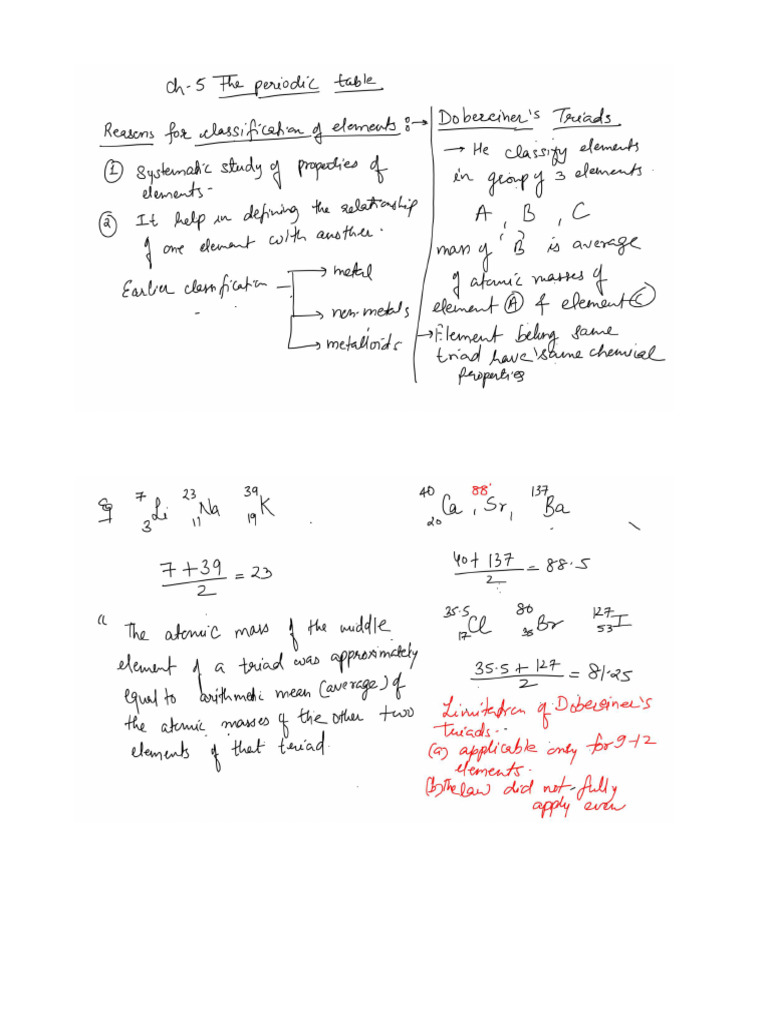 Ch-5 The periodic table
Reasons for classification of elements :→
① Systematic study of properties of
elements-
② It help in defining the relationship
of one element with another.
Earlier classification → metal
→ non-metals
→ metalloids
Dobereiner's Triads
→ He classify elements
in group of 3 elements.
A, B, C
mass of 'B' is average
of atomic masses of
element Ⓐ & element Ⓒ
→ Element belong same
triad have same chemical
properties
7 3 Li 23 11 Na 39 19 K
7+39 / 2 = 23
" The atomic mass of the middle
element of a triad was approximately
equal to arithmetic mean (average) of
the atomic masses of the other two
elements of that triad.
40 20 Ca, 88 Sr, 137 Ba
40+137 / 2 = 88.5
35.5 17 Cl 80 35 Br 127 53 I
35.5+127 / 2 = 81.25
Limitation of Dobereiner's
triads..
(a) applicable only for 9-12
elements.
(b) The law did not fully
apply even